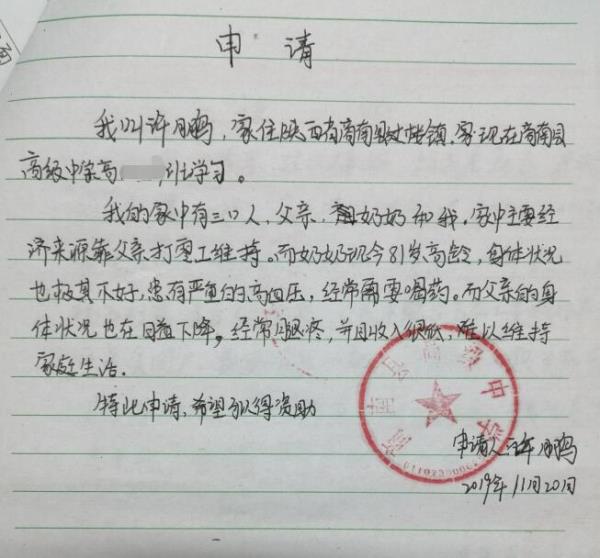 申请
我叫许月鹏，家住陕西省商南县过楼镇，家现在商南县
高级中学高 班学习。
我的家中有三口人，父亲、奶奶和我。家中主要经
济来源靠父亲打零工维持。而奶奶现今81岁高龄，身体状况
也极其不好，患有严重的高血压，经常需要喝药。而父亲的身
体状况也在日益下降，经常腿疼，并且收入很低，难以维持
家庭生活。
特此申请，希望可以得资助
商南县高级中学
申请人：许月鹏
2019年11月20日